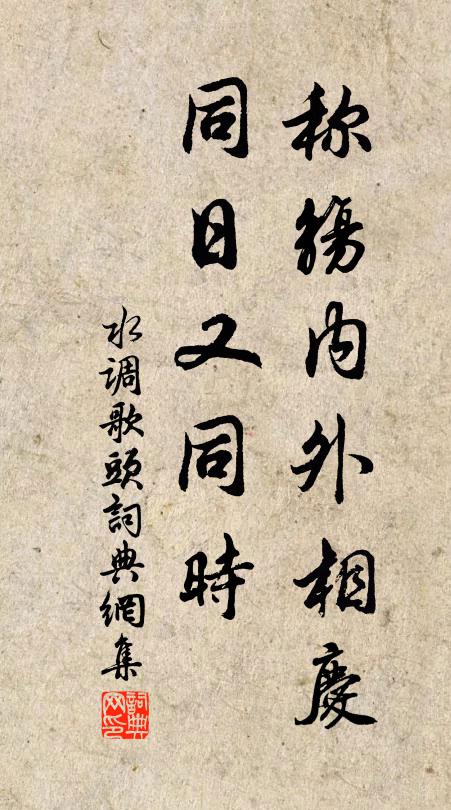 称觴内外相慶
同日又同時
水调歌頭詞典網集
詞典
网印